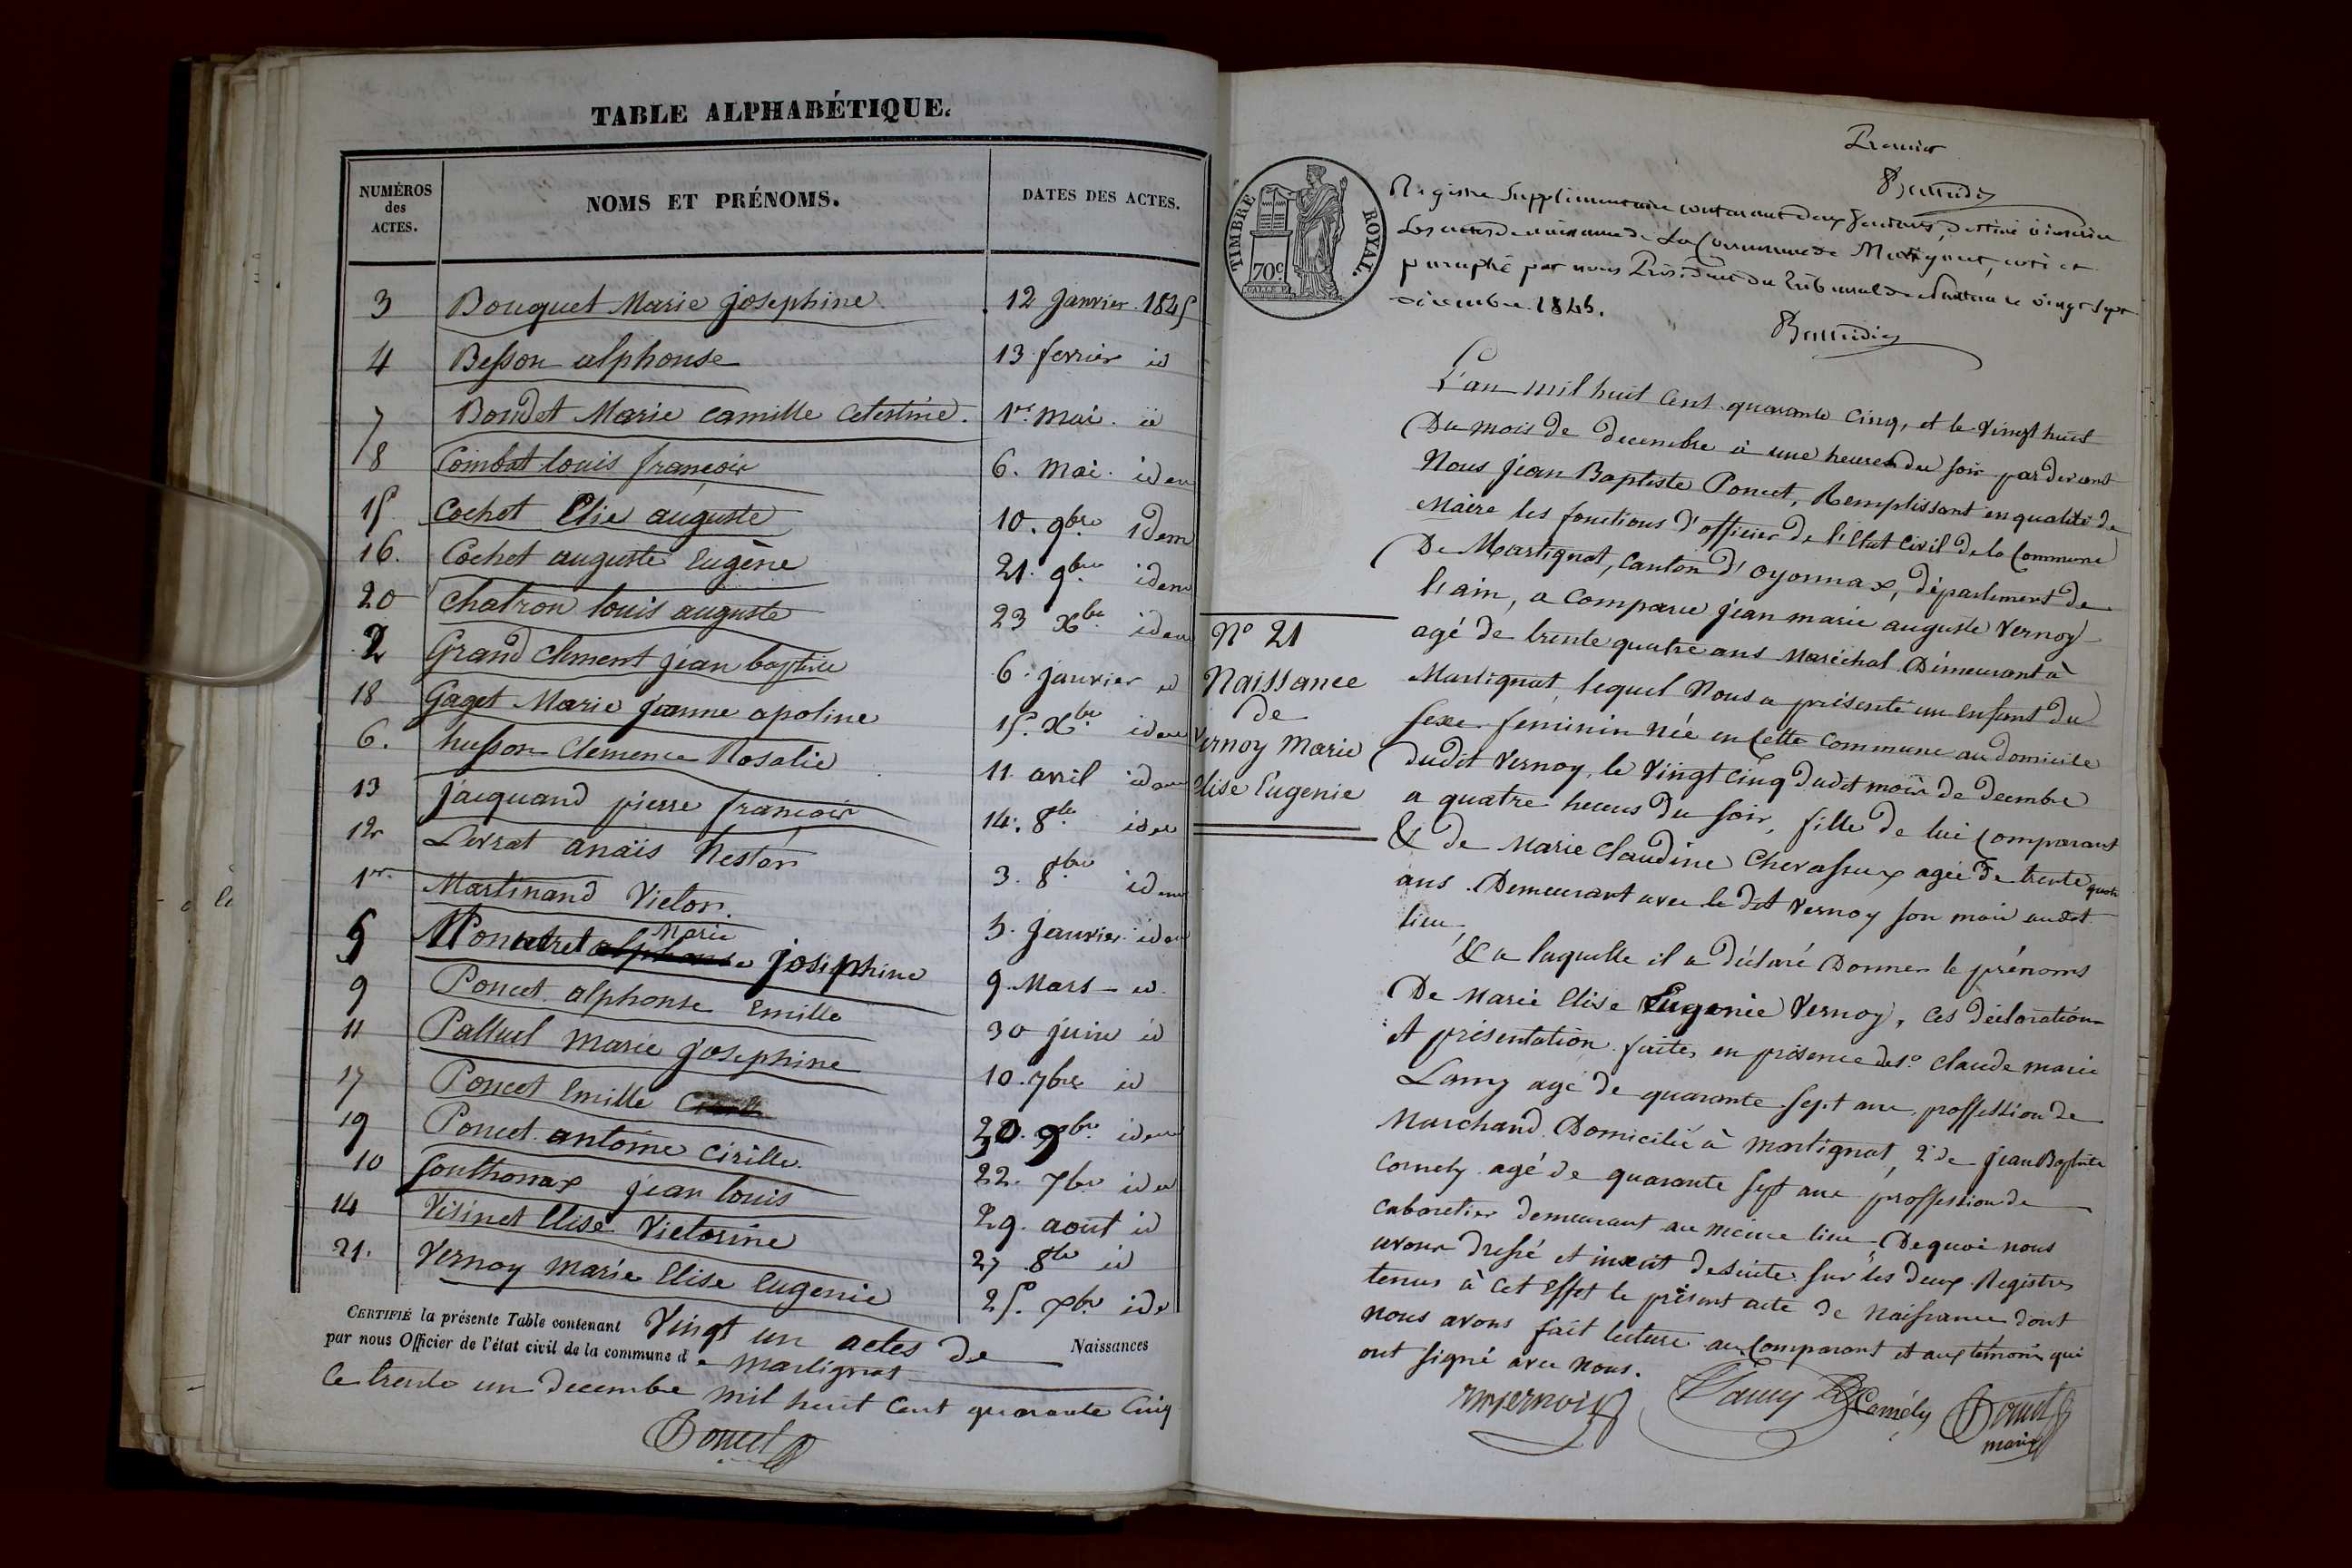 TABLE ALPHABÉTIQUE.
NUMÉROS des ACTES. NOMS ET PRÉNOMS. DATES DES ACTES.
3 Bouquet Marie josephine 12 janvier 1845
4 Besson alphonse 13 fevrier id
7 Boudet Marie Camille Celestine. 1er mai. id
8 Combet louis françois 6. mai. idem
15 Cochet Elie auguste 10. 9bre idem
16. Cochet auguste Eugène 21. 9bre idem
20 Chatron louis auguste 23 Xbre idem
2 Grand clement jean baptiste 6. janvier id
18 Gaget Marie jeanne apoline 15. Xbre idem
6. husson Clemence Rosalie 11 avril idem
13 jacquand pierre françois 14. 8bre idem
12 Levrat anaïs Nestor 3. 8bre idem
1er. Martinand Victor. 5. janvier idem
5 Marie josephine 9. Mars id
9 Poncet alphonse Emille 30 juin id
11 Palluel Marie josephine 10. 7bre id
17 Poncet Emille 30. 9bre idem
19 Poncet antoine Cirille. 22. 7bre idem
10 Sonthonax jean louis 29. aout id
14 Visinet Elise Victorine 27 8bre id
21. Vernoy Marie Elise Eugenie 25. Xbre idem
CERTIFIÉ la présente Table contenant Vingt un actes de Naissances
par nous Officier de l'état civil de la commune de Martignat
Ce trente un decembre mil huit cent quarante Cinq
Poncet
Premier
TIMBRE ROYAL.
70c
Registre Supplémentaire contenant deux feuillets, destiné à inscrire
Les actes de naissance de La Commune de Martignat, coté et
paraphé par nous Président du Tribunal de Nantua le vingt sept
décembre 1845.
L'an mil huit cent quarante cinq, et le vingt huit
Du mois de decembre à une heure du soir par devant
Nous jean Baptiste Poncet, Remplissant en qualité de
Maire les fonctions d'officier de l'Etat Civil de la Commune
De Martignat, Canton d'oyonnax, département de
l'ain, a comparu jean marie auguste Vernoy
agé de trente quatre ans Maréchal Demeurant à
Martignat, lequel Nous a présenté un enfant du
sexe feminin Née en Cette Commune au domicile
dudit Vernoy, le Vingt Cinq dudit mois de decembre
a quatre heures du soir, fille de lui Comparant
& de Marie Claudine Chevassux agée de trente quatre
ans. Demeurant avec le dit Vernoy son mari audit
lieu,
& a laquelle il a déclaré Donner le prénoms
De Marie Elise Eugenie Vernoy, Ces déclaration
et présentation faites en présence de 1° Claude marie
Lamy agé de quarante sept ans proffession de
Marchand Domicilié à Martignat, 2° de jean Baptiste
Comely agé de quarante sept ans proffession de
Cabaretier demeurant au même lieu. De quoi nous
avons dressé et inscrit desuite sur les deux Registres
tenus à cet effet le présent acte de Naissance dont
nous avons fait lecture au Comparant et aux témoins qui
ont signé avec nous.
N° 21
Naissance
de
Vernoy Marie
Elise Eugenie
Lamy Comély Poncet
maire